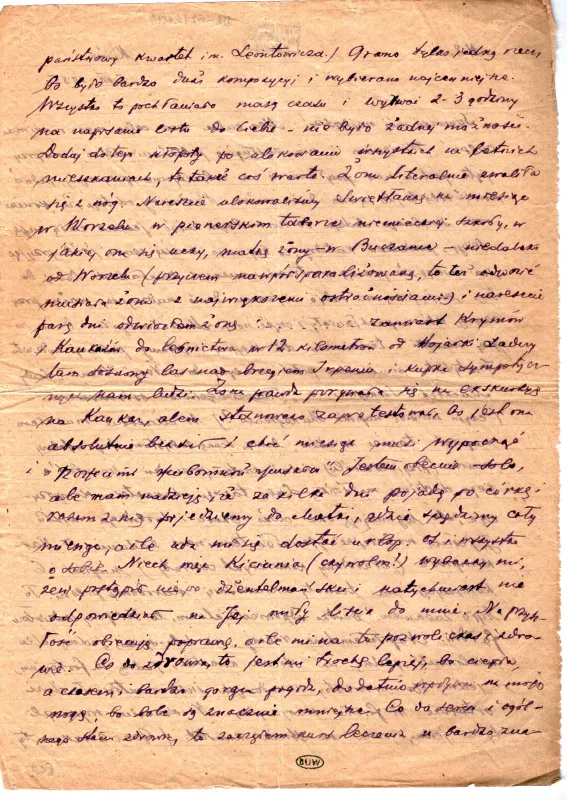 państwowy kwartet im. Leontowicza.) Grano tylko jedną rzecz
bo było bardzo dużo kompozycyj i wybierano najcenniejsze.
Wszystko to pochłaniało masę czasu i wyrwać 2-3 godziny
na napisanie listu do Ciebie - nie było żadnej możności.
Dodaj do tego kłopoty po ulokowaniu wszystkich na letnich
mieszkaniach, to także coś warte. Żona literalnie zwaliła
się z nóg. Nareszcie ulokowaliśmy Swietłanę na miesiąc
w Worzelu, w pionerskim taborze niemieckiej szkoły, w
jakiej ona się uczy, matkę żony - w Buczance - niedaleko
od Worzelu (przyczem nawpół sparaliżowaną, to też odwozić
musiała żona z największemi ostrożnościami) i nareszcie
parę dni odwiozłem żonę i zamiast Krymów
i Kaukazów do leśnictwa w 12 kilometrów od Bojarki. Ładny
tam sosnowy las nad brzegiem Irpenia i kupka sympatycz-
nych nam ludzi. Żona prawda porywała się na ekskursję
na Kaukaz, alem stanowczo zaprotestował, bo jest ona
absolutnie bez sił i choć miesiąc musi wypocząć
i Jestem obecnie solo,
ale mam nadzieję, iż za kilka dni pojadę po córkę i
razem z nią przyjedziemy do Matki, gdzie spędzimy cały
miesiąc, o ile uda mi się dostać urlop. Oj i wszystko
o sobie. Niech moja Kiciunia (czy wolno?) wybaczy mi,
żem postąpił nie po dżentelmeńsku i natychmiast nie
odpowiedział na Jej miły liścik do mnie. Na przysz-
łość obiecuję poprawę, o ile mi na to pozwoli czas i zdro-
wie. Co do zdrowia, to jest mi trochę lepiej, bo ciepła,
a czasem i bardzo gorąca pogoda, dodatnio wpływa na moją
nogę, bo bóle są znacznie mniejsze. Co do serca i ogól-
nego stanu zdrowia, to zacząłem kurs leczenia u bardzo zna-
MUB